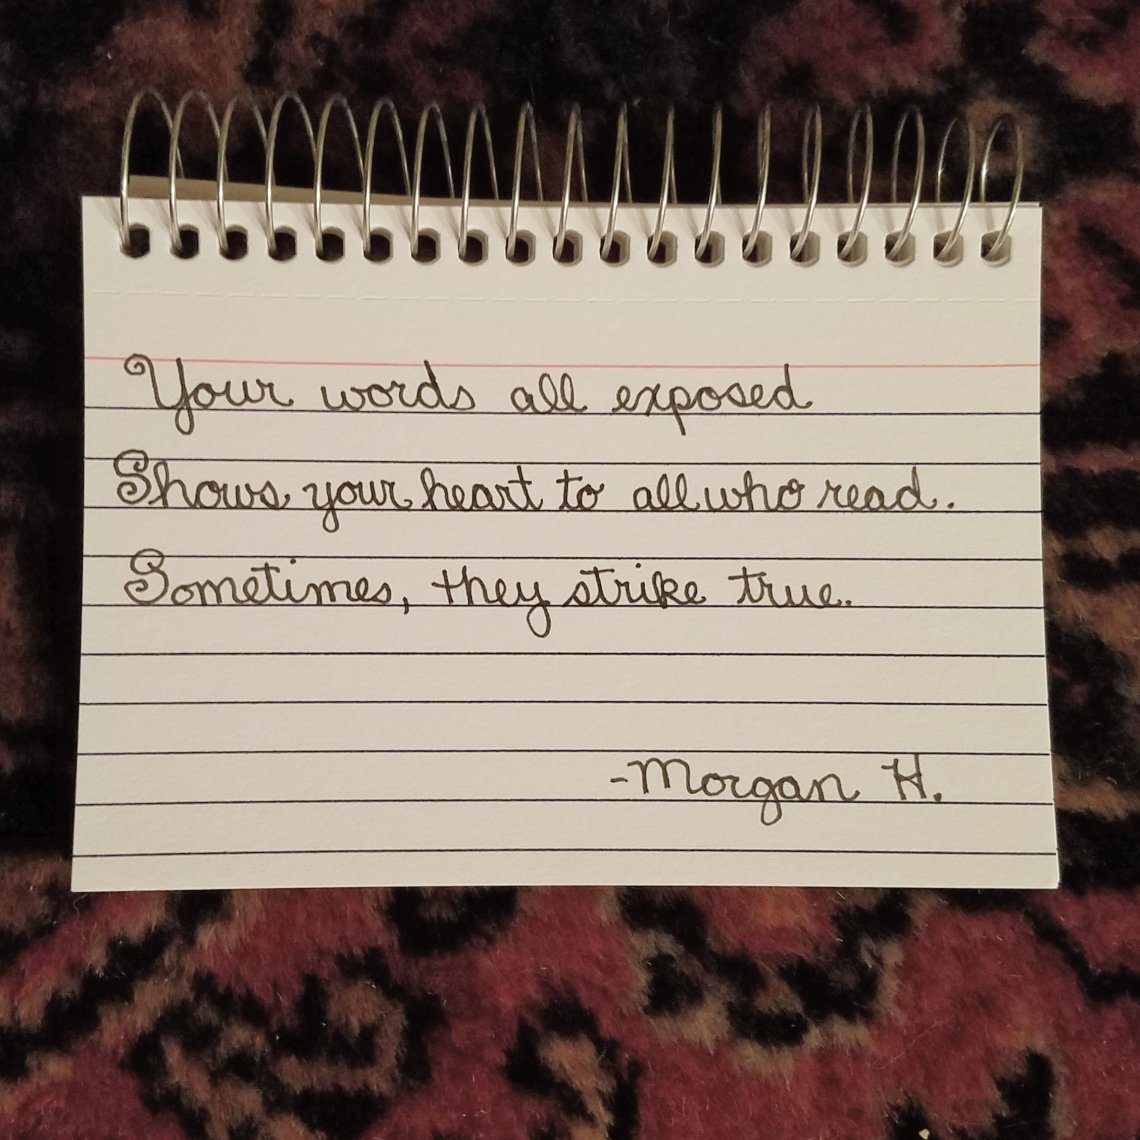 Your words all exposed
Shows your heart to all who read.
Sometimes, they strike true.
-Morgan H.